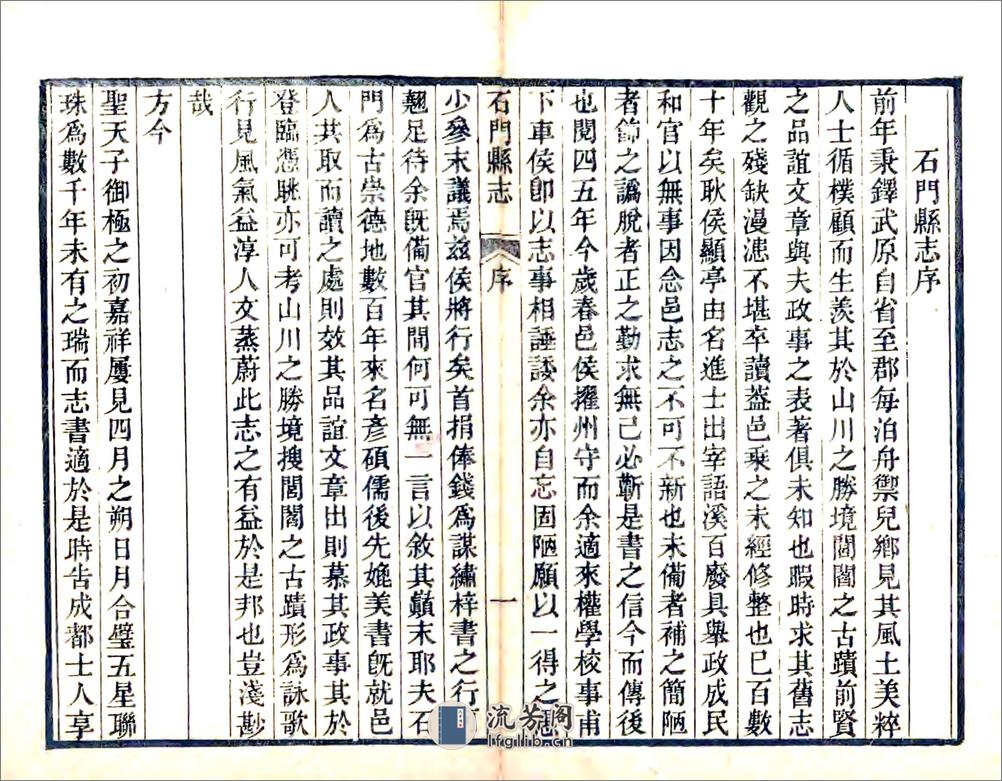 石門縣志序
前年秉鐸武原自省至郡每泊舟禦兒鄉見其風土美粹
人士循樸顧而生羨其於山川之勝境閭閻之古蹟前賢
之品誼文章與夫政事之表著俱未知也暇時求其舊志
觀之殘缺漫漶不堪卒讀蓋邑乘之未經修整也已百數
十年矣耿侯顯亭由名進士出宰語溪百廢具舉政成民
和官以無事因念邑志之不可不新也未備者補之簡陋
者節之譌脫者正之勤求無已必蘄是書之信今而傳後
也閱四五年今歲春邑侯擢州守而余適來權學校事甫
下車侯卽以志事相諈諉余亦自忘固陋願以一得之愚
石門縣志 序 一
少參末議焉茲侯將行矣首捐俸錢爲謀繡梓書之行
翹足待余旣備官其間何可無一言以敘其顚末耶夫石
門爲古崇德地數百年來名彥碩儒後先媲美書旣就邑
人其取而讀之處則效其品誼文章出則慕其政事其於
登臨憑眺亦可考山川之勝境搜閭閻之古蹟形爲詠歌
行見風氣益淳人文蒸蔚此志之有益於是邦也豈淺尠
哉
方今
聖天子御極之初嘉祥屢見四月之朔日月合璧五星聯
珠爲數千年未有之瑞而志書適於是時告成都士人享
流芳阁
lfglib.cn